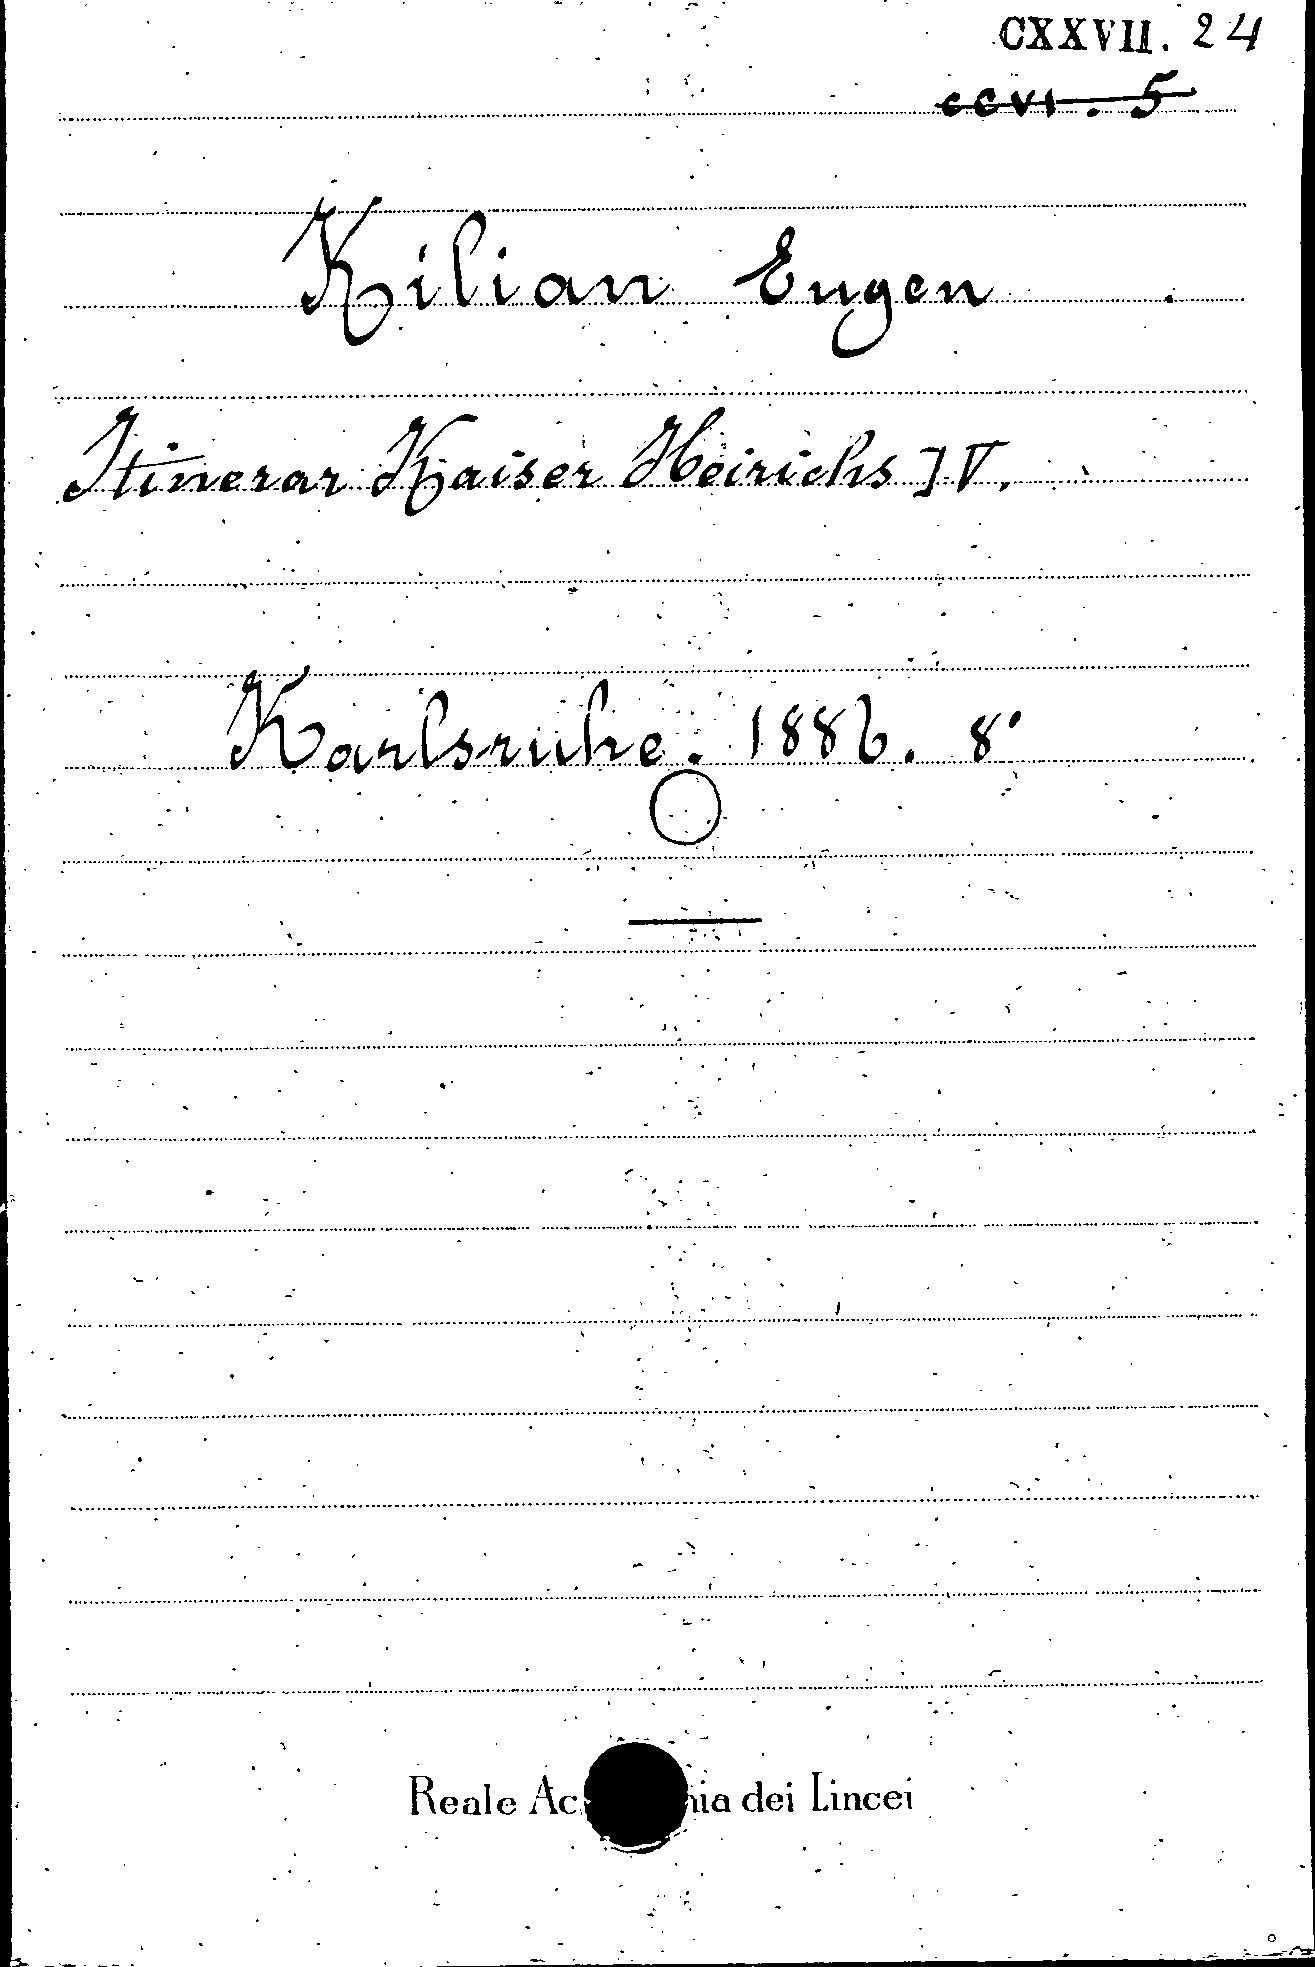 CXXVII. 24
CCVI. 5
Kilian Eugen
Itinerar Kaiser Heirichs IV.
Karlsruhe. 1886. 8°
Reale Ac nia dei Lincei